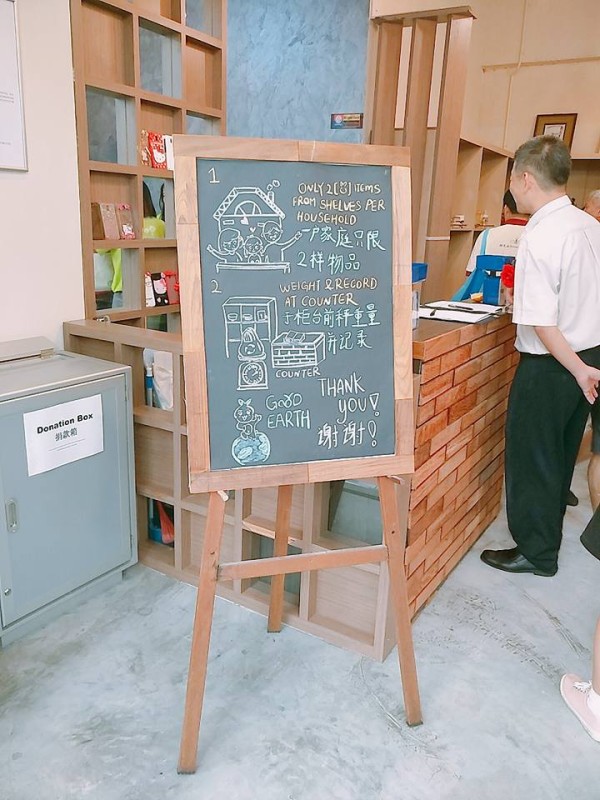 1
ONLY 2 [两] ITEMS
FROM SHELVES PER
HOUSEHOLD
一户家庭只限
2样物品
2
WEIGHT & RECORD
AT COUNTER
于柜台前秤重量
并记录
COUNTER
GOOD
EARTH
THANK
YOU!
谢谢!
Donation Box
捐款箱